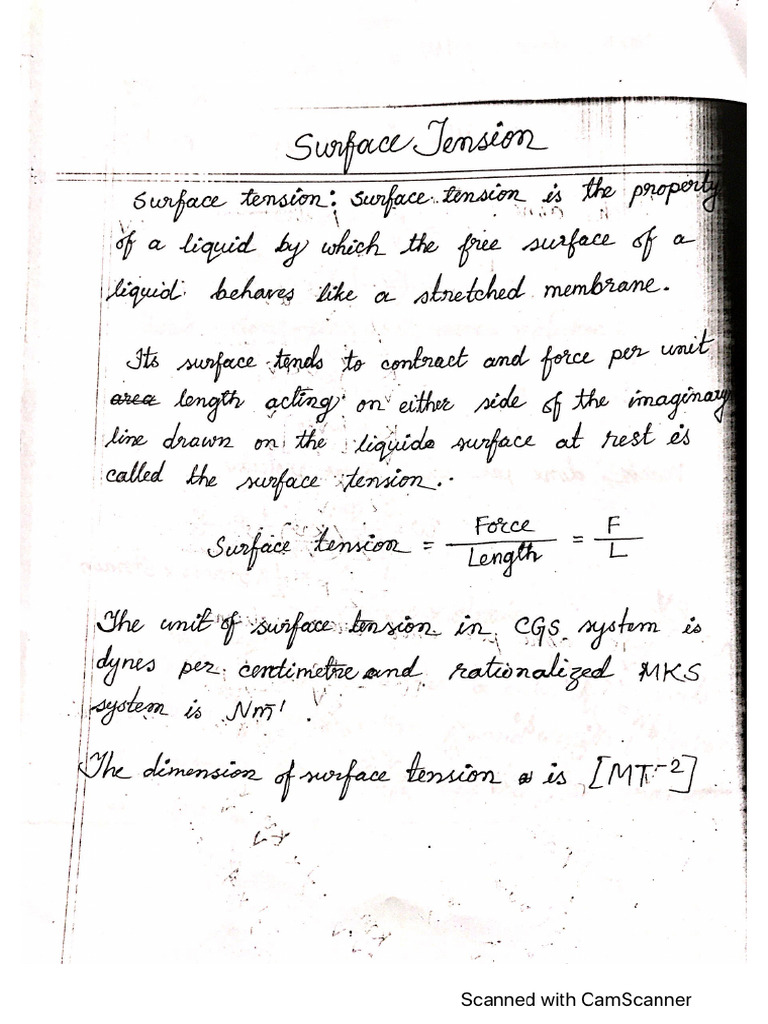 Surface Tension
Surface tension: Surface tension is the property
of a liquid by which the free surface of a
liquid behaves like a stretched membrane.
Its surface tends to contract and force per unit
area length acting on either side of the imaginary
line drawn on the liquids surface at rest is
called the surface tension.
Surface tension = Force / Length = F / L
The unit of surface tension in CGS system is
dynes per centimetre and rationalized MKS
system is Nm⁻¹.
The dimension of surface tension is [MT⁻²]
Scanned with CamScanner